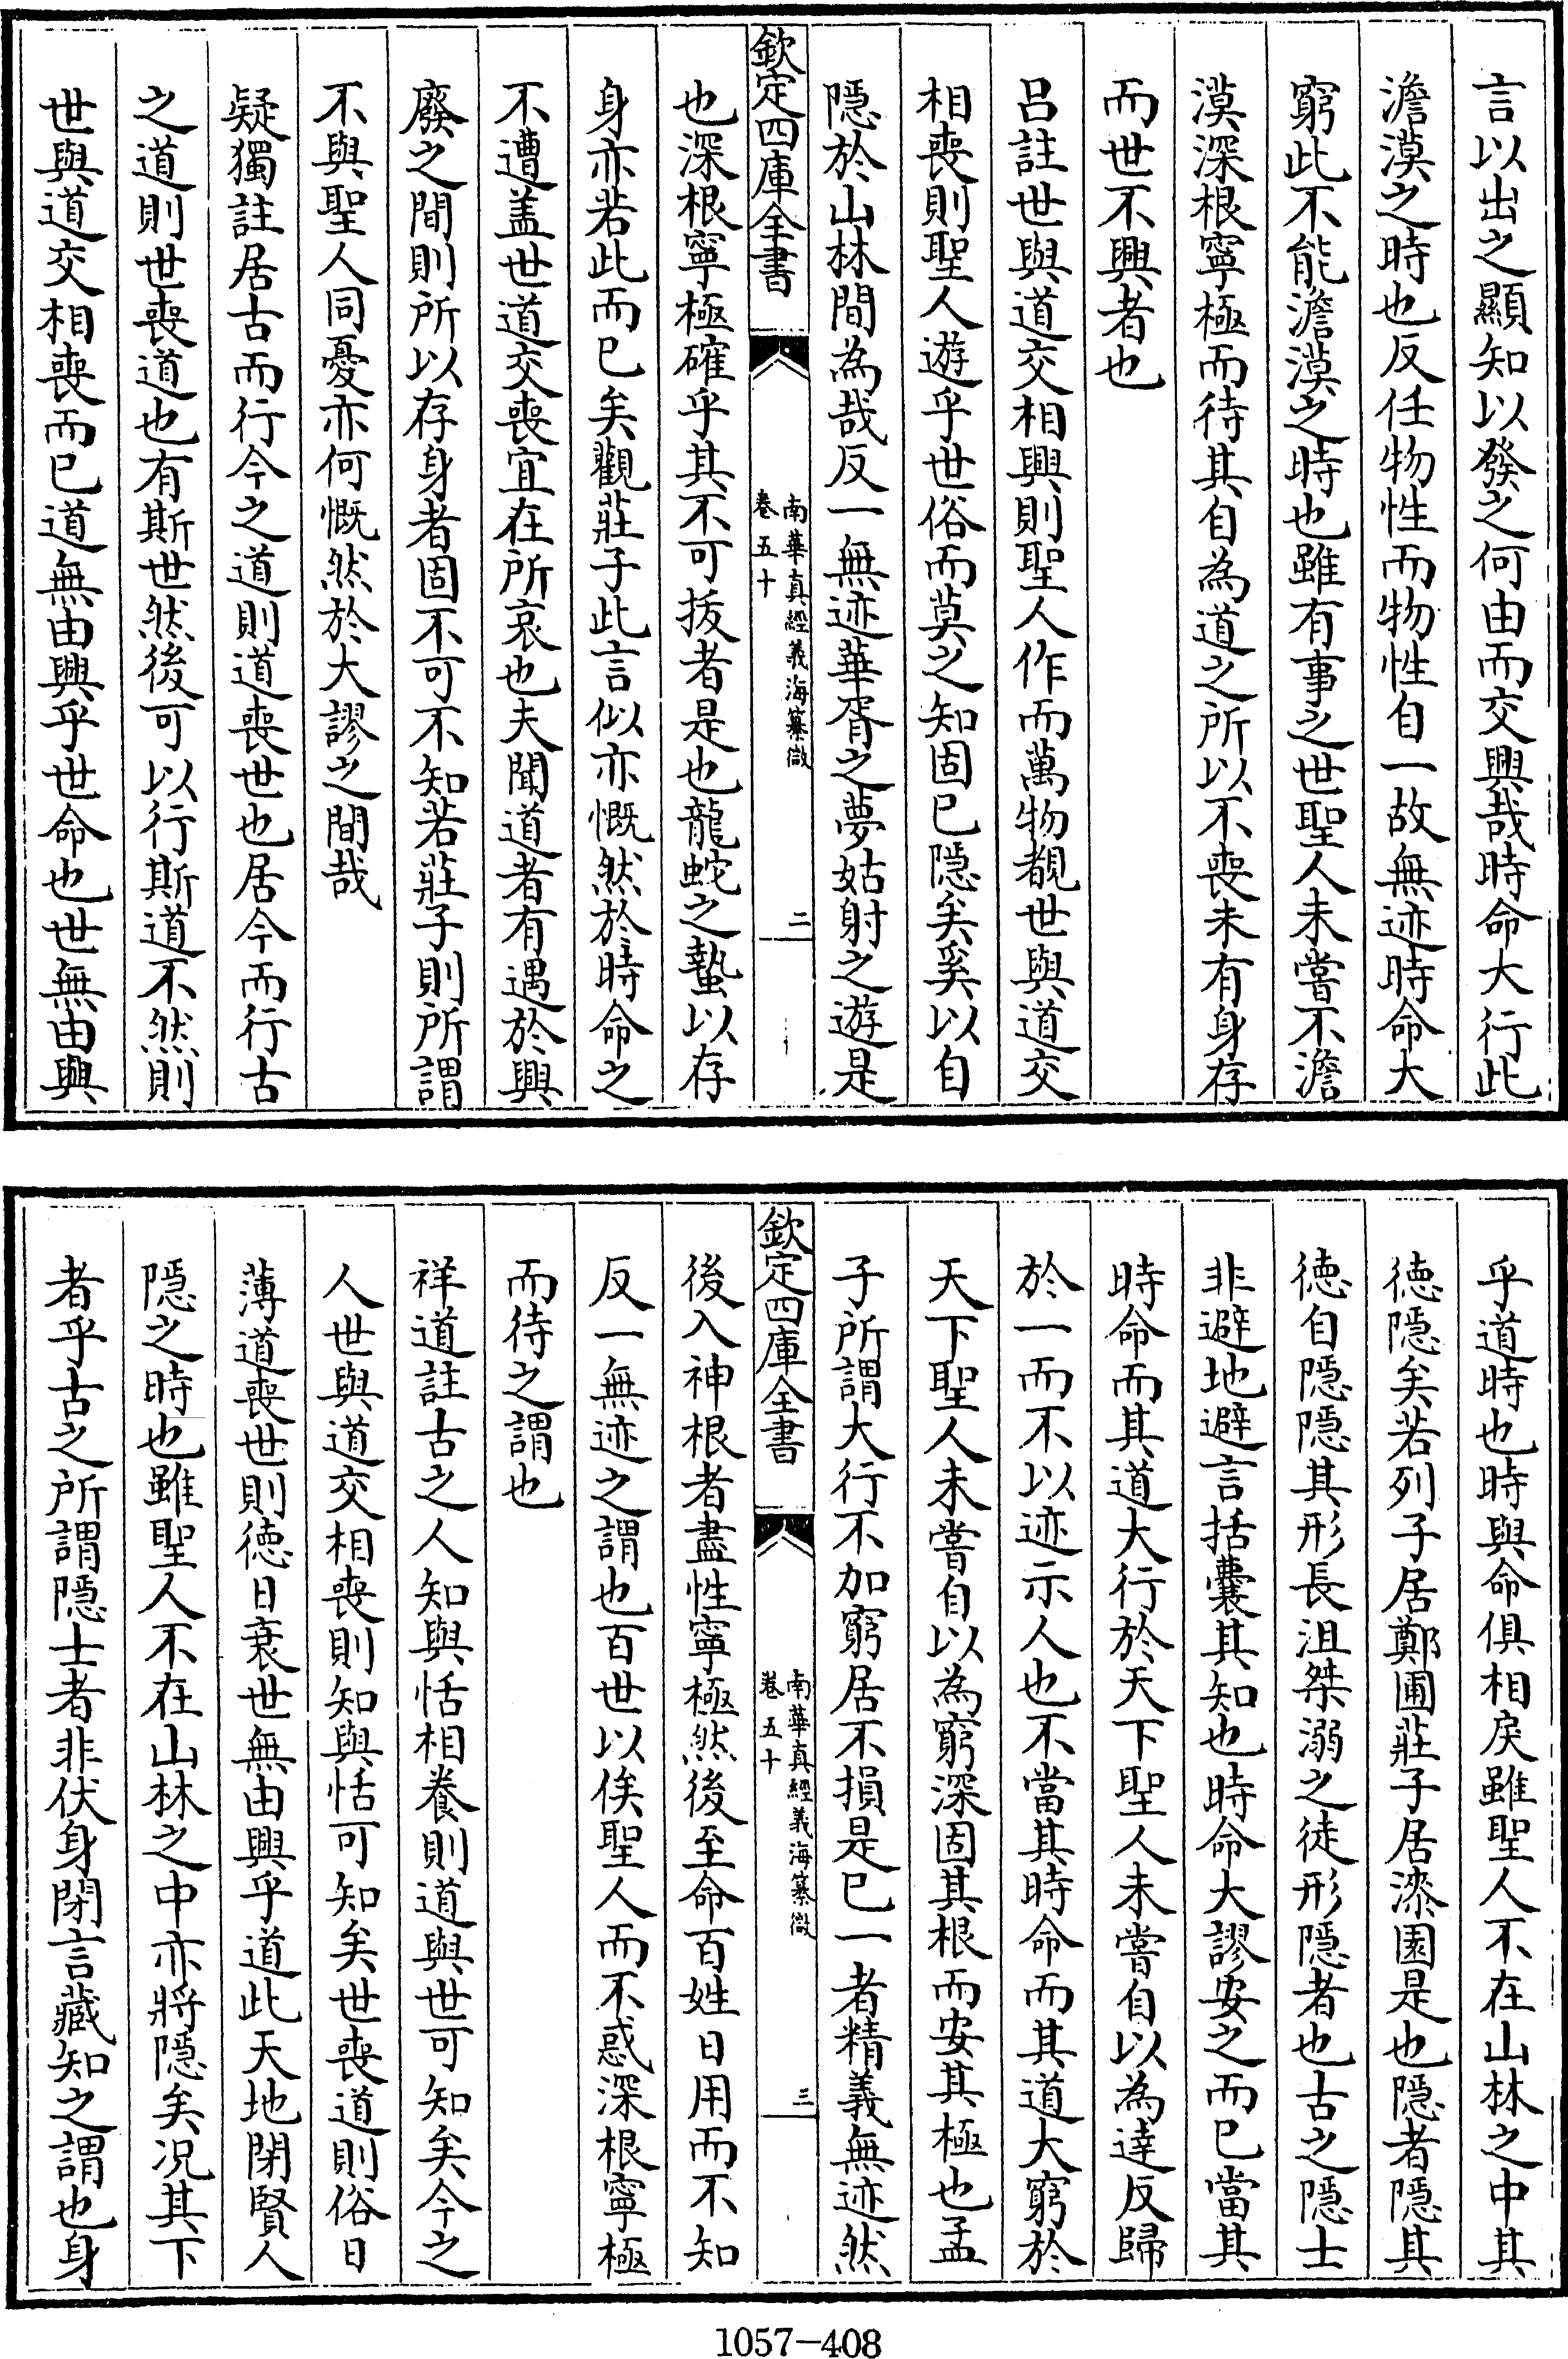 言以出之顯知以發之何由而交興哉時命大行此
澹漠之時也反任物性而物性自一故無迹時命大
窮此不能澹漠之時也雖有事之世聖人未嘗不澹
漠深根寧極而待其自為道之所以不喪未有身存
而世不興者也
呂註世與道交相興則聖人作而萬物覩世與道交
相喪則聖人遊乎世俗而莫之知固已隱矣奚以自
隱於山林間為哉反一無迹華胥之夢姑射之遊是
欽定四庫全書
南華真經義海纂微
卷五十
二
也深根寧極確乎其不可拔者是也龍蛇之蟄以存
身亦若此而已矣觀莊子此言似亦慨然於時命之
不遭盖世道交喪宜在所哀也夫聞道者有遇於興
廢之間則所以存身者固不可不知若莊子則所謂
不與聖人同憂亦何慨然於大謬之間哉
疑獨註居古而行今之道則道喪世也居今而行古
之道則世喪道也有斯世然後可以行斯道不然則
世與道交相喪而已道無由興乎世命也世無由興
乎道時也時與命俱相戾雖聖人不在山林之中其
徳隱矣若列子居鄭圃莊子居漆園是也隱者隱其
徳自隱隱其形長沮桀溺之徒形隱者也古之隱士
非避地避言括囊其知也時命大謬安之而已當其
時命而其道大行於天下聖人未嘗自以為達反歸
於一而不以迹示人也不當其時命而其道大窮於
天下聖人未嘗自以為窮深固其根而安其極也孟
子所謂大行不加窮居不損是已一者精義無迹然
欽定四庫全書
南華真經義海纂微
卷五十
三
後入神根者盡性寧極然後至命百姓日用而不知
反一無迹之謂也百世以俟聖人而不惑深根寧極
而待之謂也
祥道註古之人知與恬相養則道與世可知矣今之
人世與道交相喪則知與恬可知矣世喪道則俗日
薄道喪世則徳日衰世無由興乎道此天地閉賢人
隱之時也雖聖人不在山林之中亦將隱矣况其下
者乎古之所謂隱士者非伏身閉言藏知之謂也身
1057-408